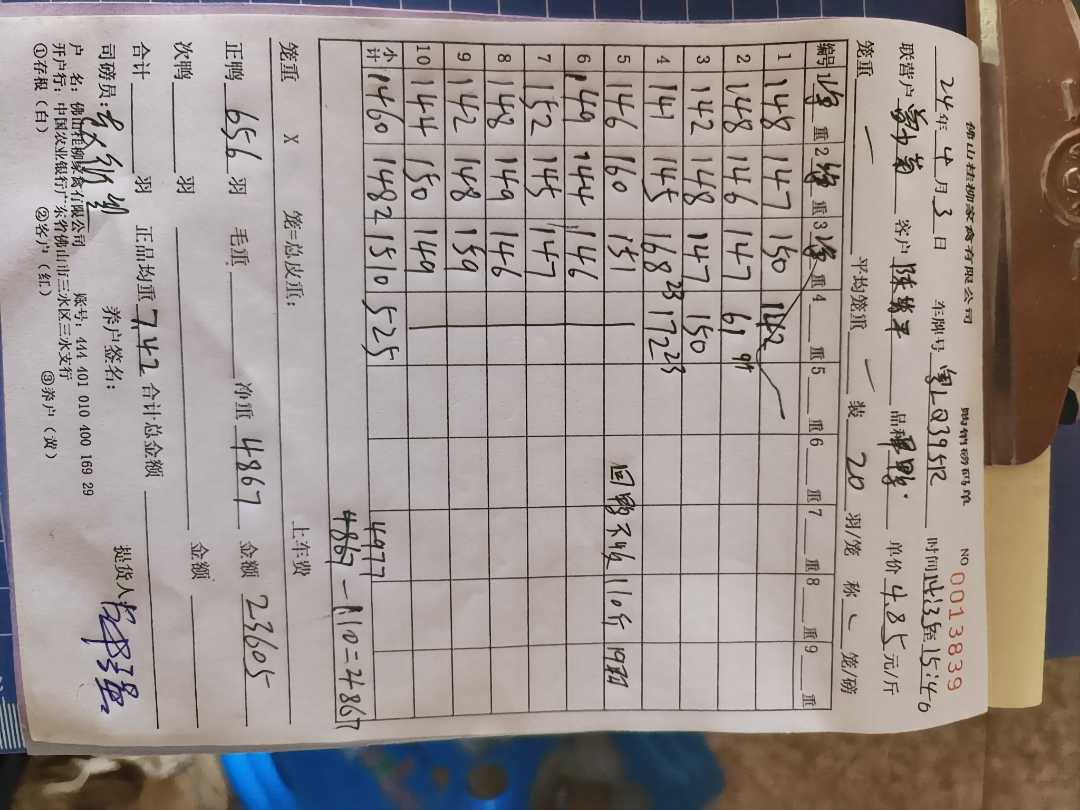 佛山桂柳家禽有限公司 购销磅码单 NO 0013839
24年4月3日 车牌号 粤LQ3952 时间 至15:46
联营户 客户 陈 品种 单价 4.85 元/斤
笼重 一 平均笼重 一 装 20 羽/笼 称 2 笼/磅
编号 1 重 2 重 3 重 4 重 5 重 6 重 7 重 8 重 9 重
1 148 147 150 142
2 148 146 147 61
3 142 148 147 150
4 141 145 168 23 172 23
5 146 160 151 回鸭不收 110斤
6 149 144 146
7 152 145 147
8 148 149 146
9 142 148 159
10 144 150 149
小计 1460 1482 1510 525 4977
4867-110=4867
笼重 X 笼=总皮重: 上车费
正鸭 656 羽 毛重 净重 4867 金额 23605
次鸭 羽 金额
合计 羽 正品均重 7.42 合计总金额
司磅员: 养户签名: 提货人:
户 名: 佛山桂柳家禽有限公司 账号: 444 401 010 400 169 29
开户行: 中国农业银行广东省佛山市三水区三水支行
①存根(白) ②客户(红) ③养户(黄)